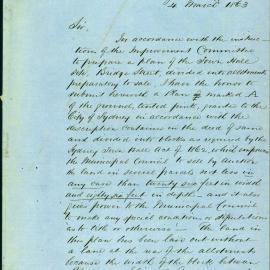 4 March 1863
Sir,
In accordance with the instruc-
tion of the Improvement Committee
to prepare a plan of the Town Hall
Site, Bridge Street, divided into allotments
preparatory to sale, I have the honor to
submit herewith a Plan marked A
of the ground, tinted pink, granted to the
City of Sydney in accordance with the
description contained in the deed of same
and divided into blocks as required by the
Sydney Town Hall Act of 1862 which empowers
the Municipal Council to sell by auction
the land in several parcels not less in
any case than twenty six feet in width
and eighty six feet in depth and it also
gives power to the Municipal Council
to make any special condition or stipulations
as to title or otherwise — The land in
this plan has been laid out without
a lane at the rear of the allotments
because the width of the block between